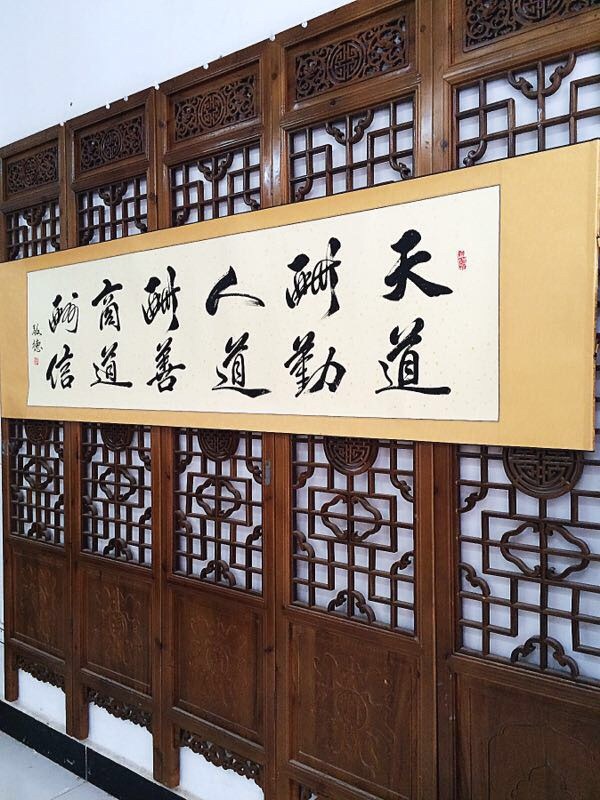 天道
酬勤
人道
酬善
商道
酬信
敏德